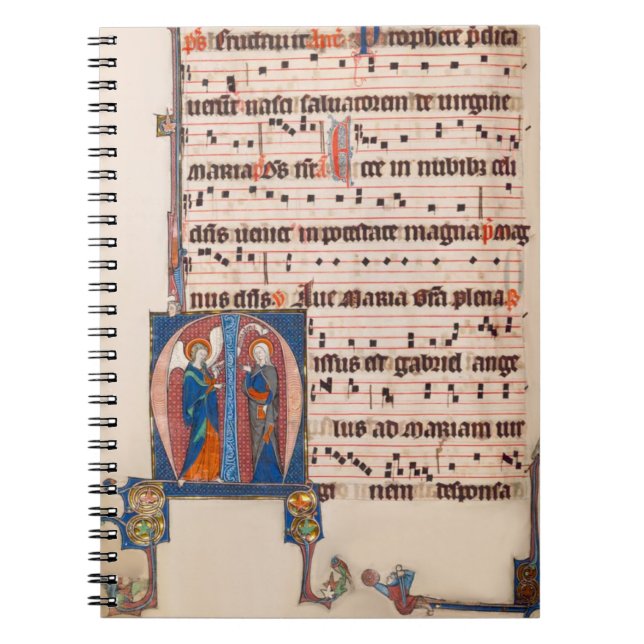 ps Eructauit Ant Prophete pdica
uerūt nasci saluatorem de uirgine
MARIA ps Ecce in nubibz celi
dns ueniet in potestate magna. p mag
nus dns. v Aue MARIA Gra plena. R
issus est gabriel ange
lus AD MARIAM uir
gi nem desponsa